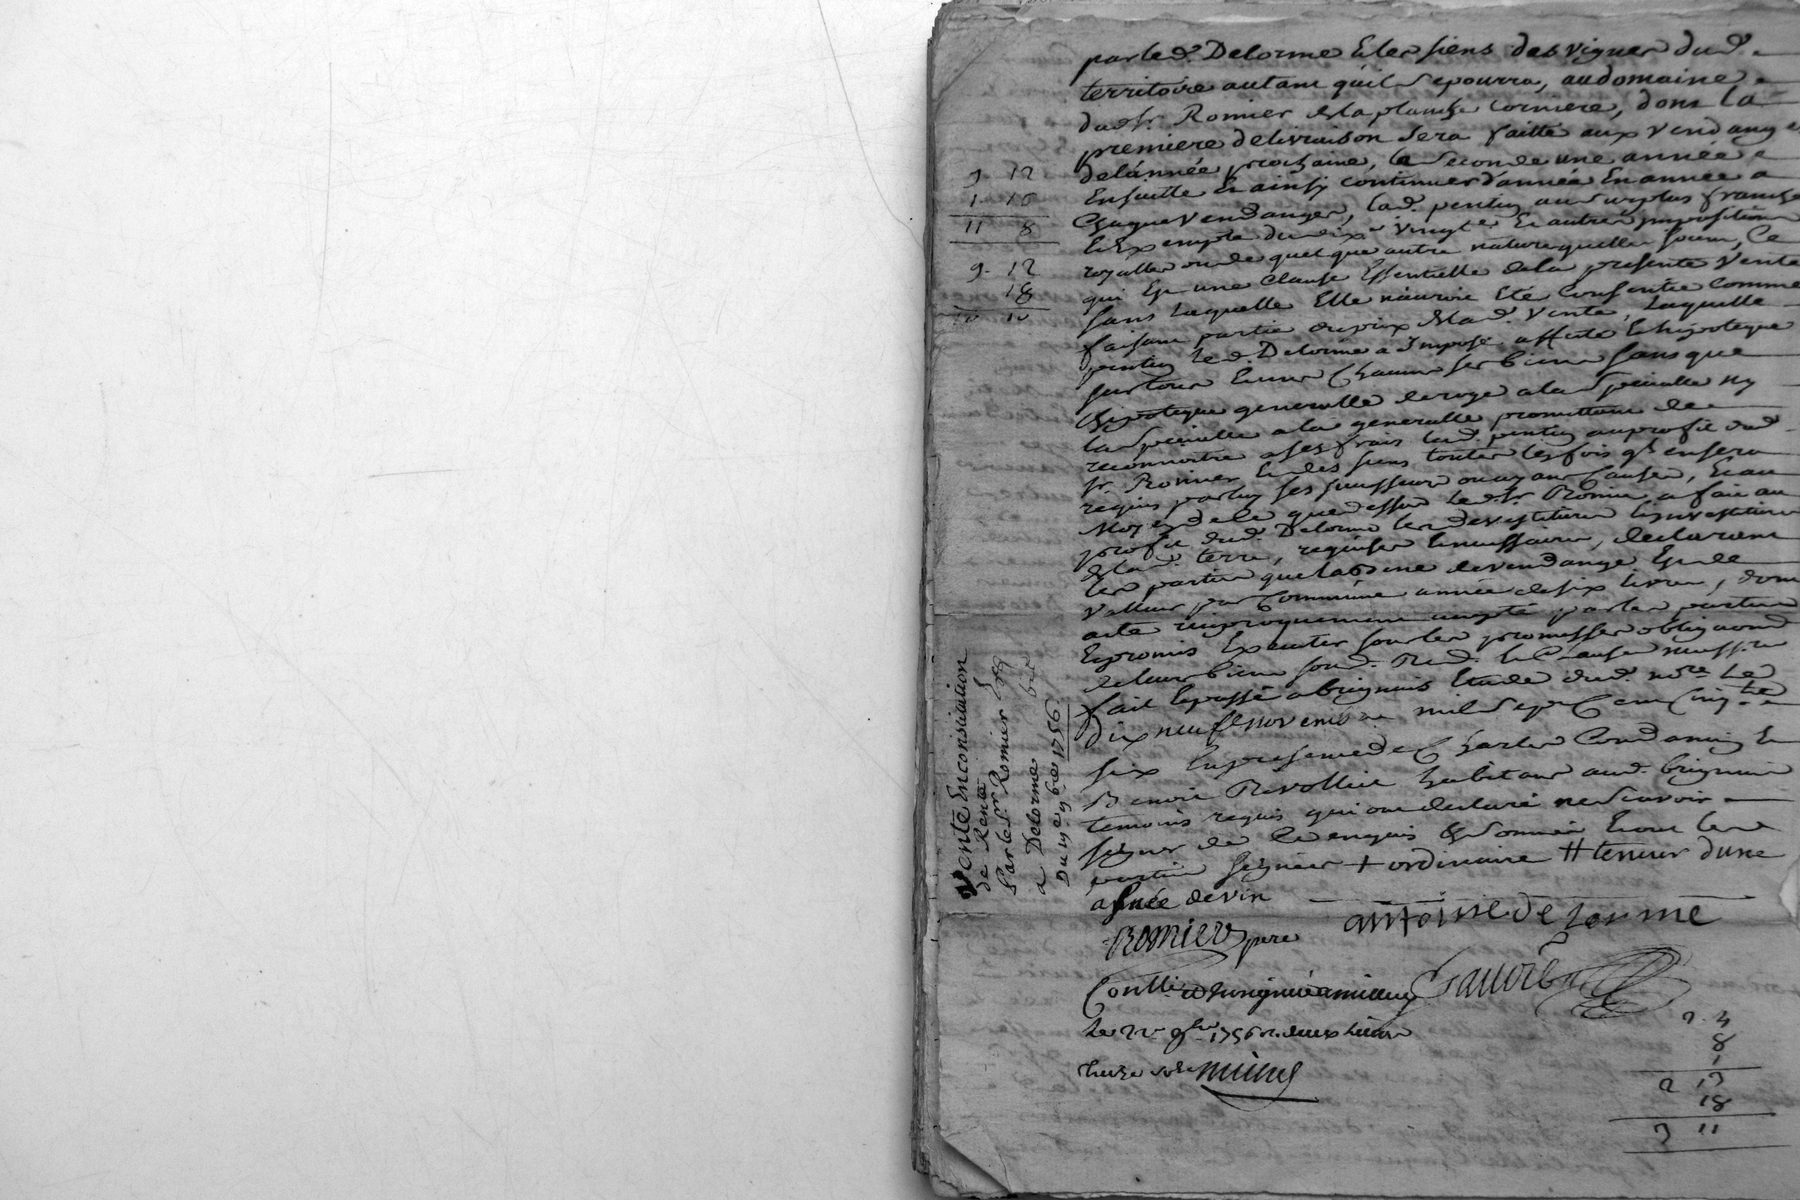 par led. Delorme & les siens des vignes dud.
territoire autant quil se pourra, au domaine
dud. sr. Romier de la planche corniere, dont la
premiere delivraison sera faitte aux vendanges
de lánnée prochaine, la seconde une année
Ensuitte & ainsy continuer d'année En année a
chaque vendanges, lad. pention au surplus franche
& Exempte du dixe. vingte. & autres impositions
royalles ou de quelque autre nature quelles soient, Ce
qui Est une clause Essentielle de la presente vente
sans laquelle Elle náuroit Eté consentie comme
faisant partie du prix de lad. vente, laquelle
pention led. Delorme a Imposé affecté & hipoteque
sur tous & uns chacuns ses biens sans que
lhipoteque generalle deroge a la specialle ny
la specialle a la generalle promettant de
reconnoitre a ses frais lad. pention au profit dud.
sr. Romier & des siens toutes les fois ql. en sera
requis par luy ses successeurs ou ayant Cause, & au
Moyen de ce que dessus led. sr. Romier a fait au
profit dud. Delorme les devestitures & investitures
de lad. terre, requises & necessaires, declarant
les parties que labenne de vendange Est de
valleur par Commune année de six livres, dont
acte reciproquement accepté par les parties
& promis Executer sous les promesses obligaons.
de leurs biens soud. Red. & Clauses necessres.
fait & passé a brignais Etude dud. nore. Le
dix neuf novembre mil sept Cent Cinqte.
six En presence de Charles Condamin &
Benoit Revollier habitans aud. brignais
temoins requis qui ont declaré ne scavoir
signer de ce enquis & sommés & ont les
parties signées + ordinaire # teneur dune
asnée de vin
Romier pere
antoine de lorme
Gavoi
Conttlé
le 22e 9bre 1756 R. deux livres
9 12
1 16
11 8
9 12
18
10 10
Vente En constitution
de Rente
Par le Sr. Romier
a Delorme
Du 19e. 9bre 1756
2 4
8
1
2 13
18
3 11